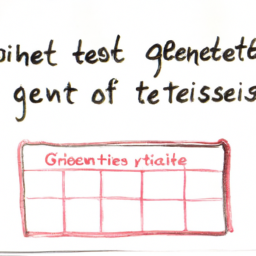 oihet test geenetett
gent of teteisseis
Grieenties ytiaite